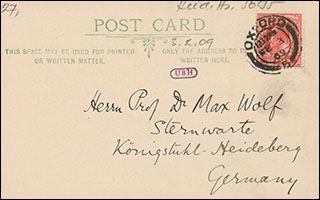 27,
POST CARD
THIS SPACE MAY BE USED FOR PRINTED
OR WRITTEN MATTER.
ONLY THE ADDRESS TO BE
WRITTEN HERE.
3.2.09
UBH
OXFORD
Herrn Prof Dr Max Wolf
Sternwarte
Königstuhl-Heideberg
Germany